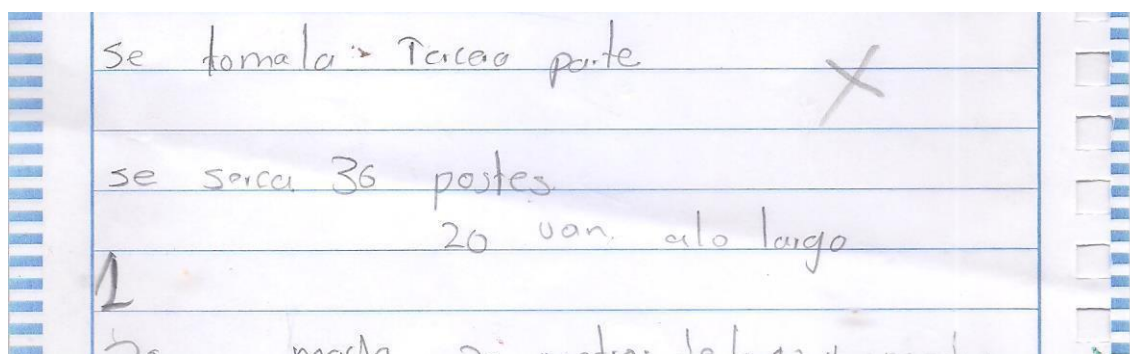 se toma la Tercera parte
X
se serca 36 postes
20 van. alo largo
1